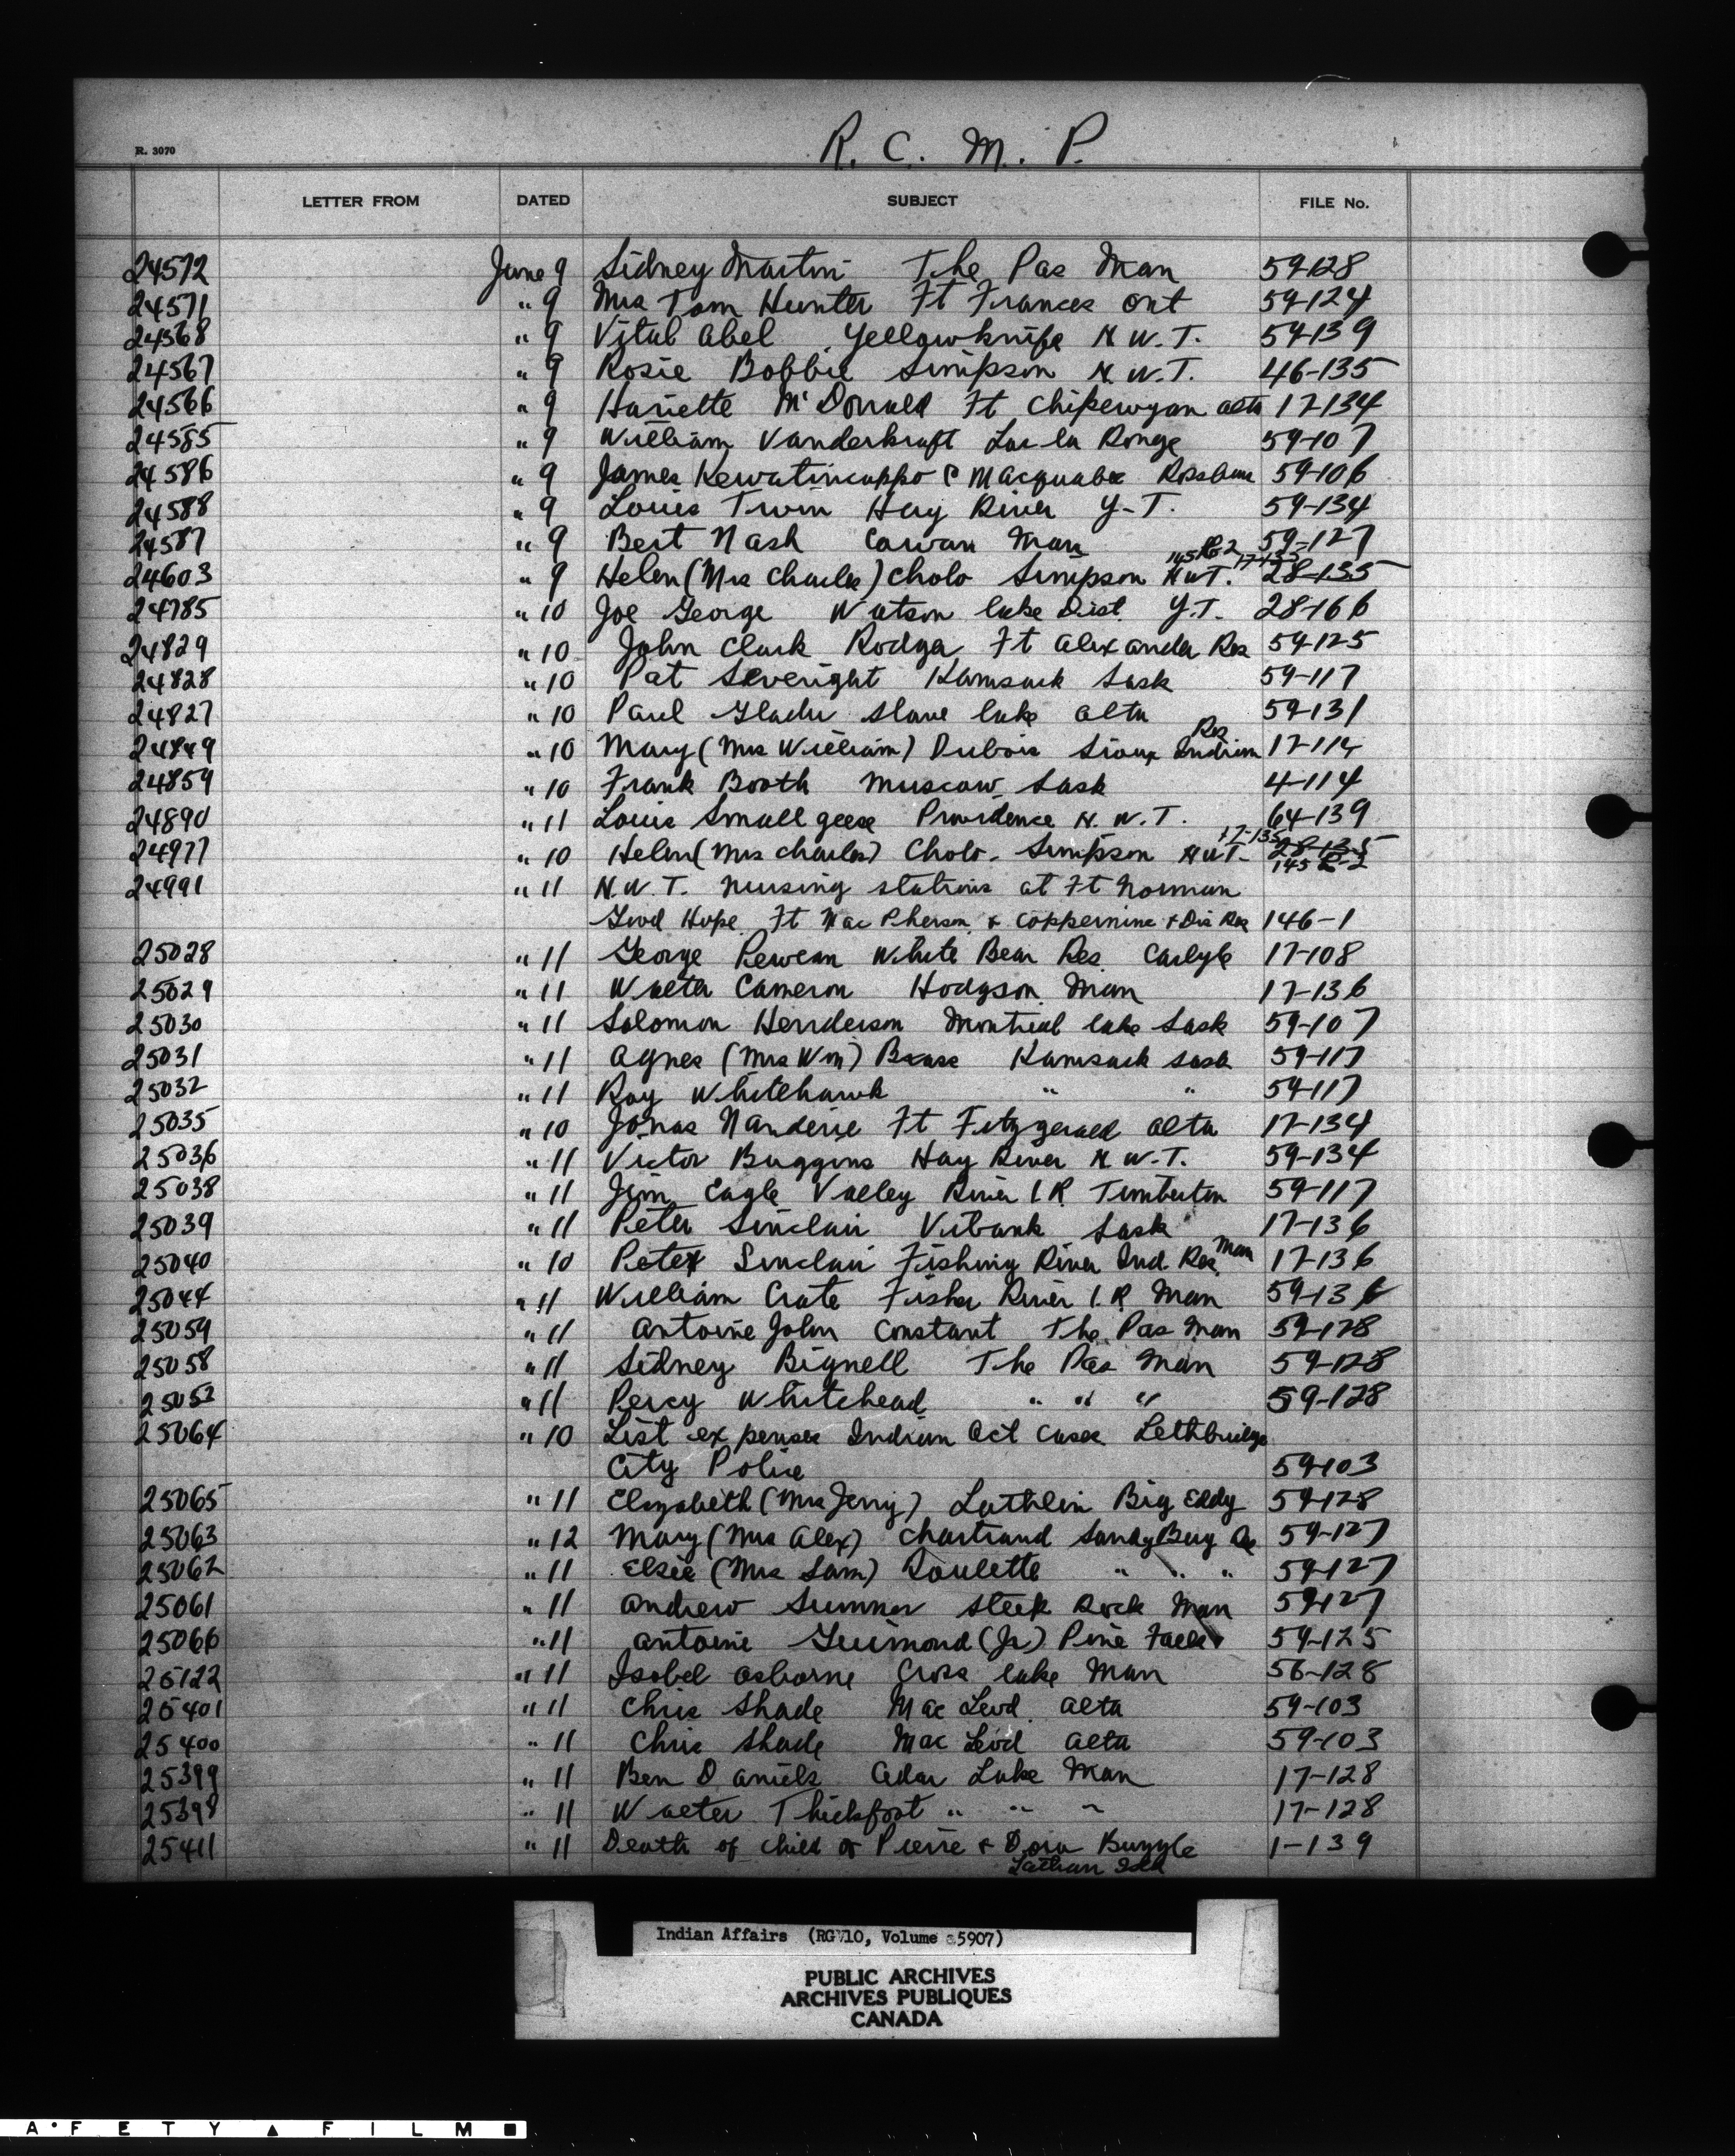 R. C. M. P.
R. 3070
LETTER FROM DATED SUBJECT FILE No.
24572 June 9 Sidney Martin The Pas Man 59-128
24571 " 9 Mrs Tom Hunter Ft Frances Ont 59-124
24568 " 9 Vital Abel Yellowknife N.W.T. 59-139
24567 " 9 Rosie Bobbie Simpson N.W.T. 46-135
24566 " 9 Hariette McDonald Ft Chipewyan Alta 17-134
24585 " 9 William Vanderkraft Lac la Ronge 59-107
24586 " 9 James Kewatincappo & Macquabe 59-106
24588 " 9 Louis Twin Hay River Y-T. 59-134
24587 " 9 Bert Nash Cowan Man 59-127
24603 " 9 Helen (Mrs Charles) Cholo Simpson N.W.T. 28-135
24785 " 10 Joe George Watson lake Dist. Y.T. 28-166
24829 " 10 John Clark Rodger Ft Alexander Res 59-125
24828 " 10 Pat Severight Kamsack Sask 59-117
24827 " 10 Paul Gladu Slave lake Alta 59-131
Res
24849 " 10 Mary (Mrs William) Dubois Sioux Indian 17-114
24859 " 10 Frank Booth Muscow Sask 4-114
24890 " 11 Louis Small geese Providence N.W.T. 64-139
17-135
24977 " 10 Helen (Mrs Charles) Cholo. Simpson N.W.T. 28-135
24991 " 11 N.W.T. nursing stations at Ft Norman
Good Hope Ft Mac Pherson & Coppermine & Dis Res 146-1
25028 " 11 George Pewean White Bear Res. Carlyle 17-108
25029 " 11 Walter Cameron Hodgson Man 17-136
25030 " 11 Solomon Henderson Montreal lake Sask 59-107
25031 " 11 Agnes (Mrs Wm) Brass Kamsack Sask 59-117
25032 " 11 Roy Whitehawk " " 59-117
25035 " 10 Jonas Nanderie Ft Fitzgerald Alta 17-134
25036 " 11 Victor Buggins Hay River N.W.T. 59-134
25038 " 11 Jim Eagle Valley River I.R. Timberton 59-117
25039 " 11 Peter Sinclair Vibank Sask 17-136
25040 " 10 Peter Sinclair Fishing River Ind Res. Man 17-136
25044 " 11 William Crate Fisher River I.R. Man 59-136
25059 " 11 Antoine John Constant The Pas Man 59-128
25058 " 11 Sidney Bignell The Pas Man 59-128
25052 " 11 Percy Whitehead " " " 59-128
25064 " 10 List expenses Indian Act Cases Lethbridge
City Police 59-103
25065 " 11 Elizabeth (Mrs Jerry) Lathlin Big Eddy 59-128
25063 " 12 Mary (Mrs Alex) Chartrand Sandy Bay Res 59-127
25062 " 11 Elsie (Mrs Sam) Roulette " " " 59-127
25061 " 11 Andrew Sumner Steep Rock Man 59-127
25066 " 11 Antoine Guimond (Jr) Pine Falls 59-125
25122 " 11 Isobel Osborne Cross lake Man 56-128
25401 " 11 Chris Shade Mac Leod Alta 59-103
25400 " 11 Chris Shade Mac Leod Alta 59-103
25399 " 11 Ben Daniels Cedar Lake Man 17-128
25398 " 11 Walter Thickfoot " " " 17-128
25411 " 11 Death of child of Pierre & Dora Buggle 1-139
Indian Affairs (RG 10, Volume 5907)
PUBLIC ARCHIVES
ARCHIVES PUBLIQUES
CANADA
AFETY FILM